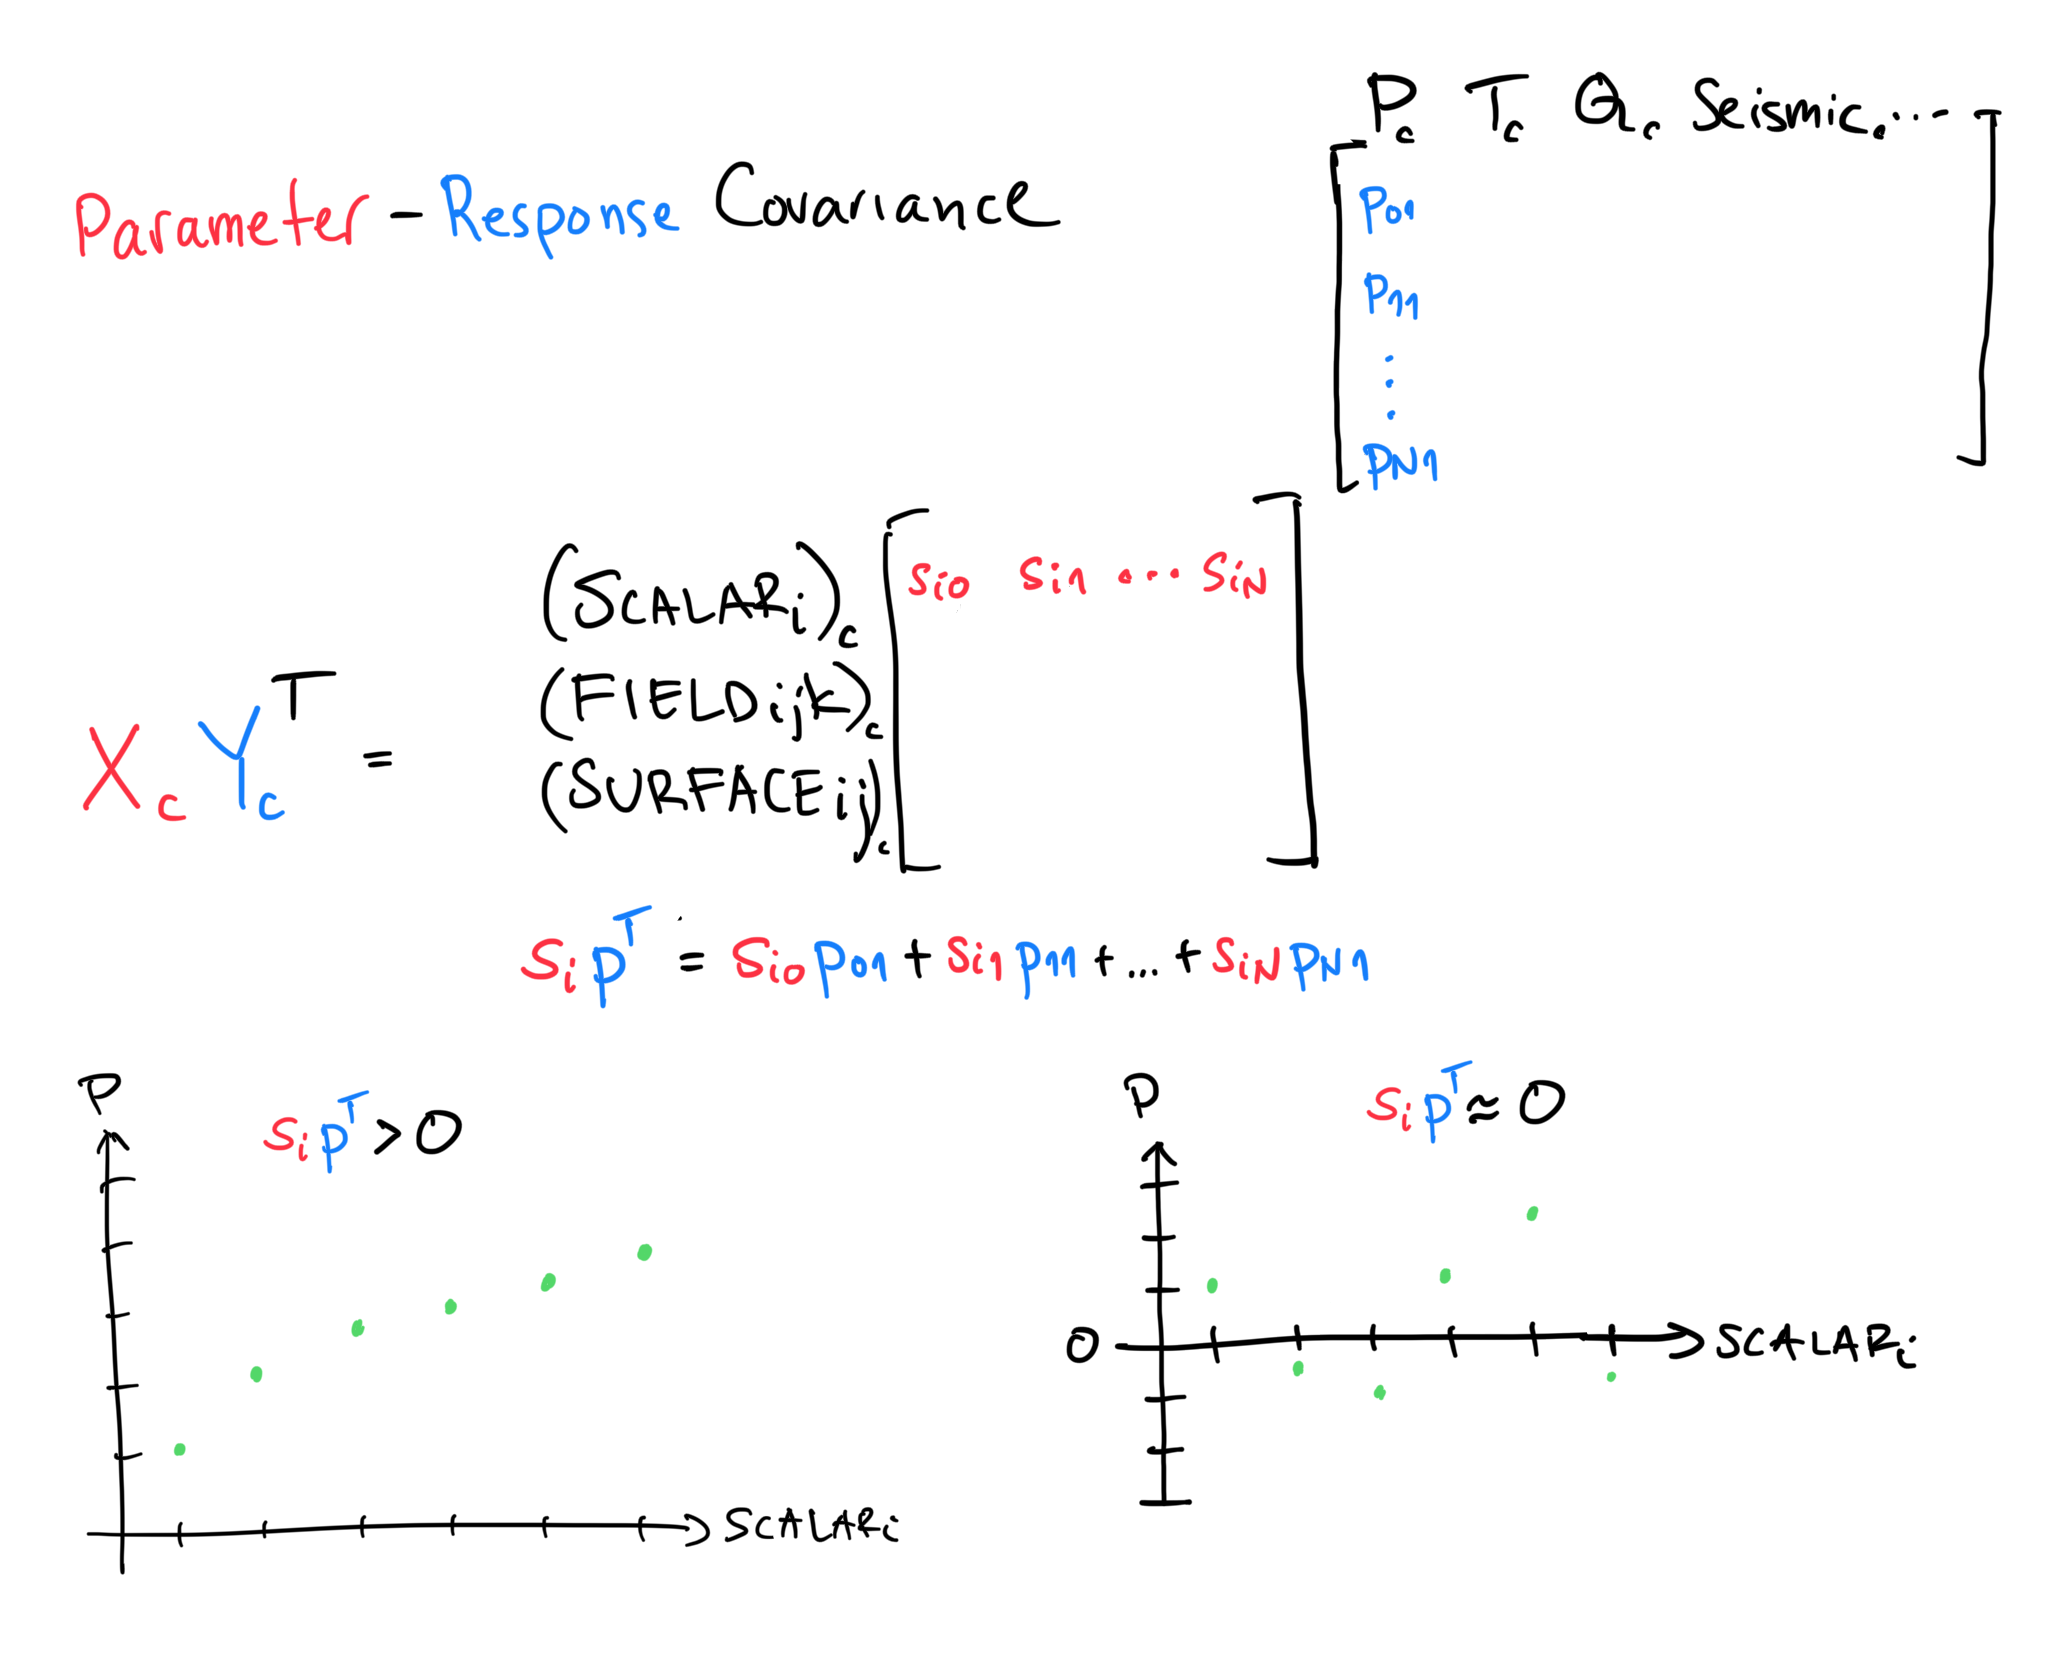 Parameter - Response Covariance
P_c T_c Q_c Seismic_c ...
p01
p11
⋮
pN1
(SCALARi)_c
si0 si1 ... siN
(FIELDijk)_c
(SURFACEij)_c
X_c Y_c^T =
si p^T = si0 p01 + si1 p11 + ... + siN pN1
P
si p^T > 0
SCALARi
P
si p^T ≈ 0
0
SCALARi